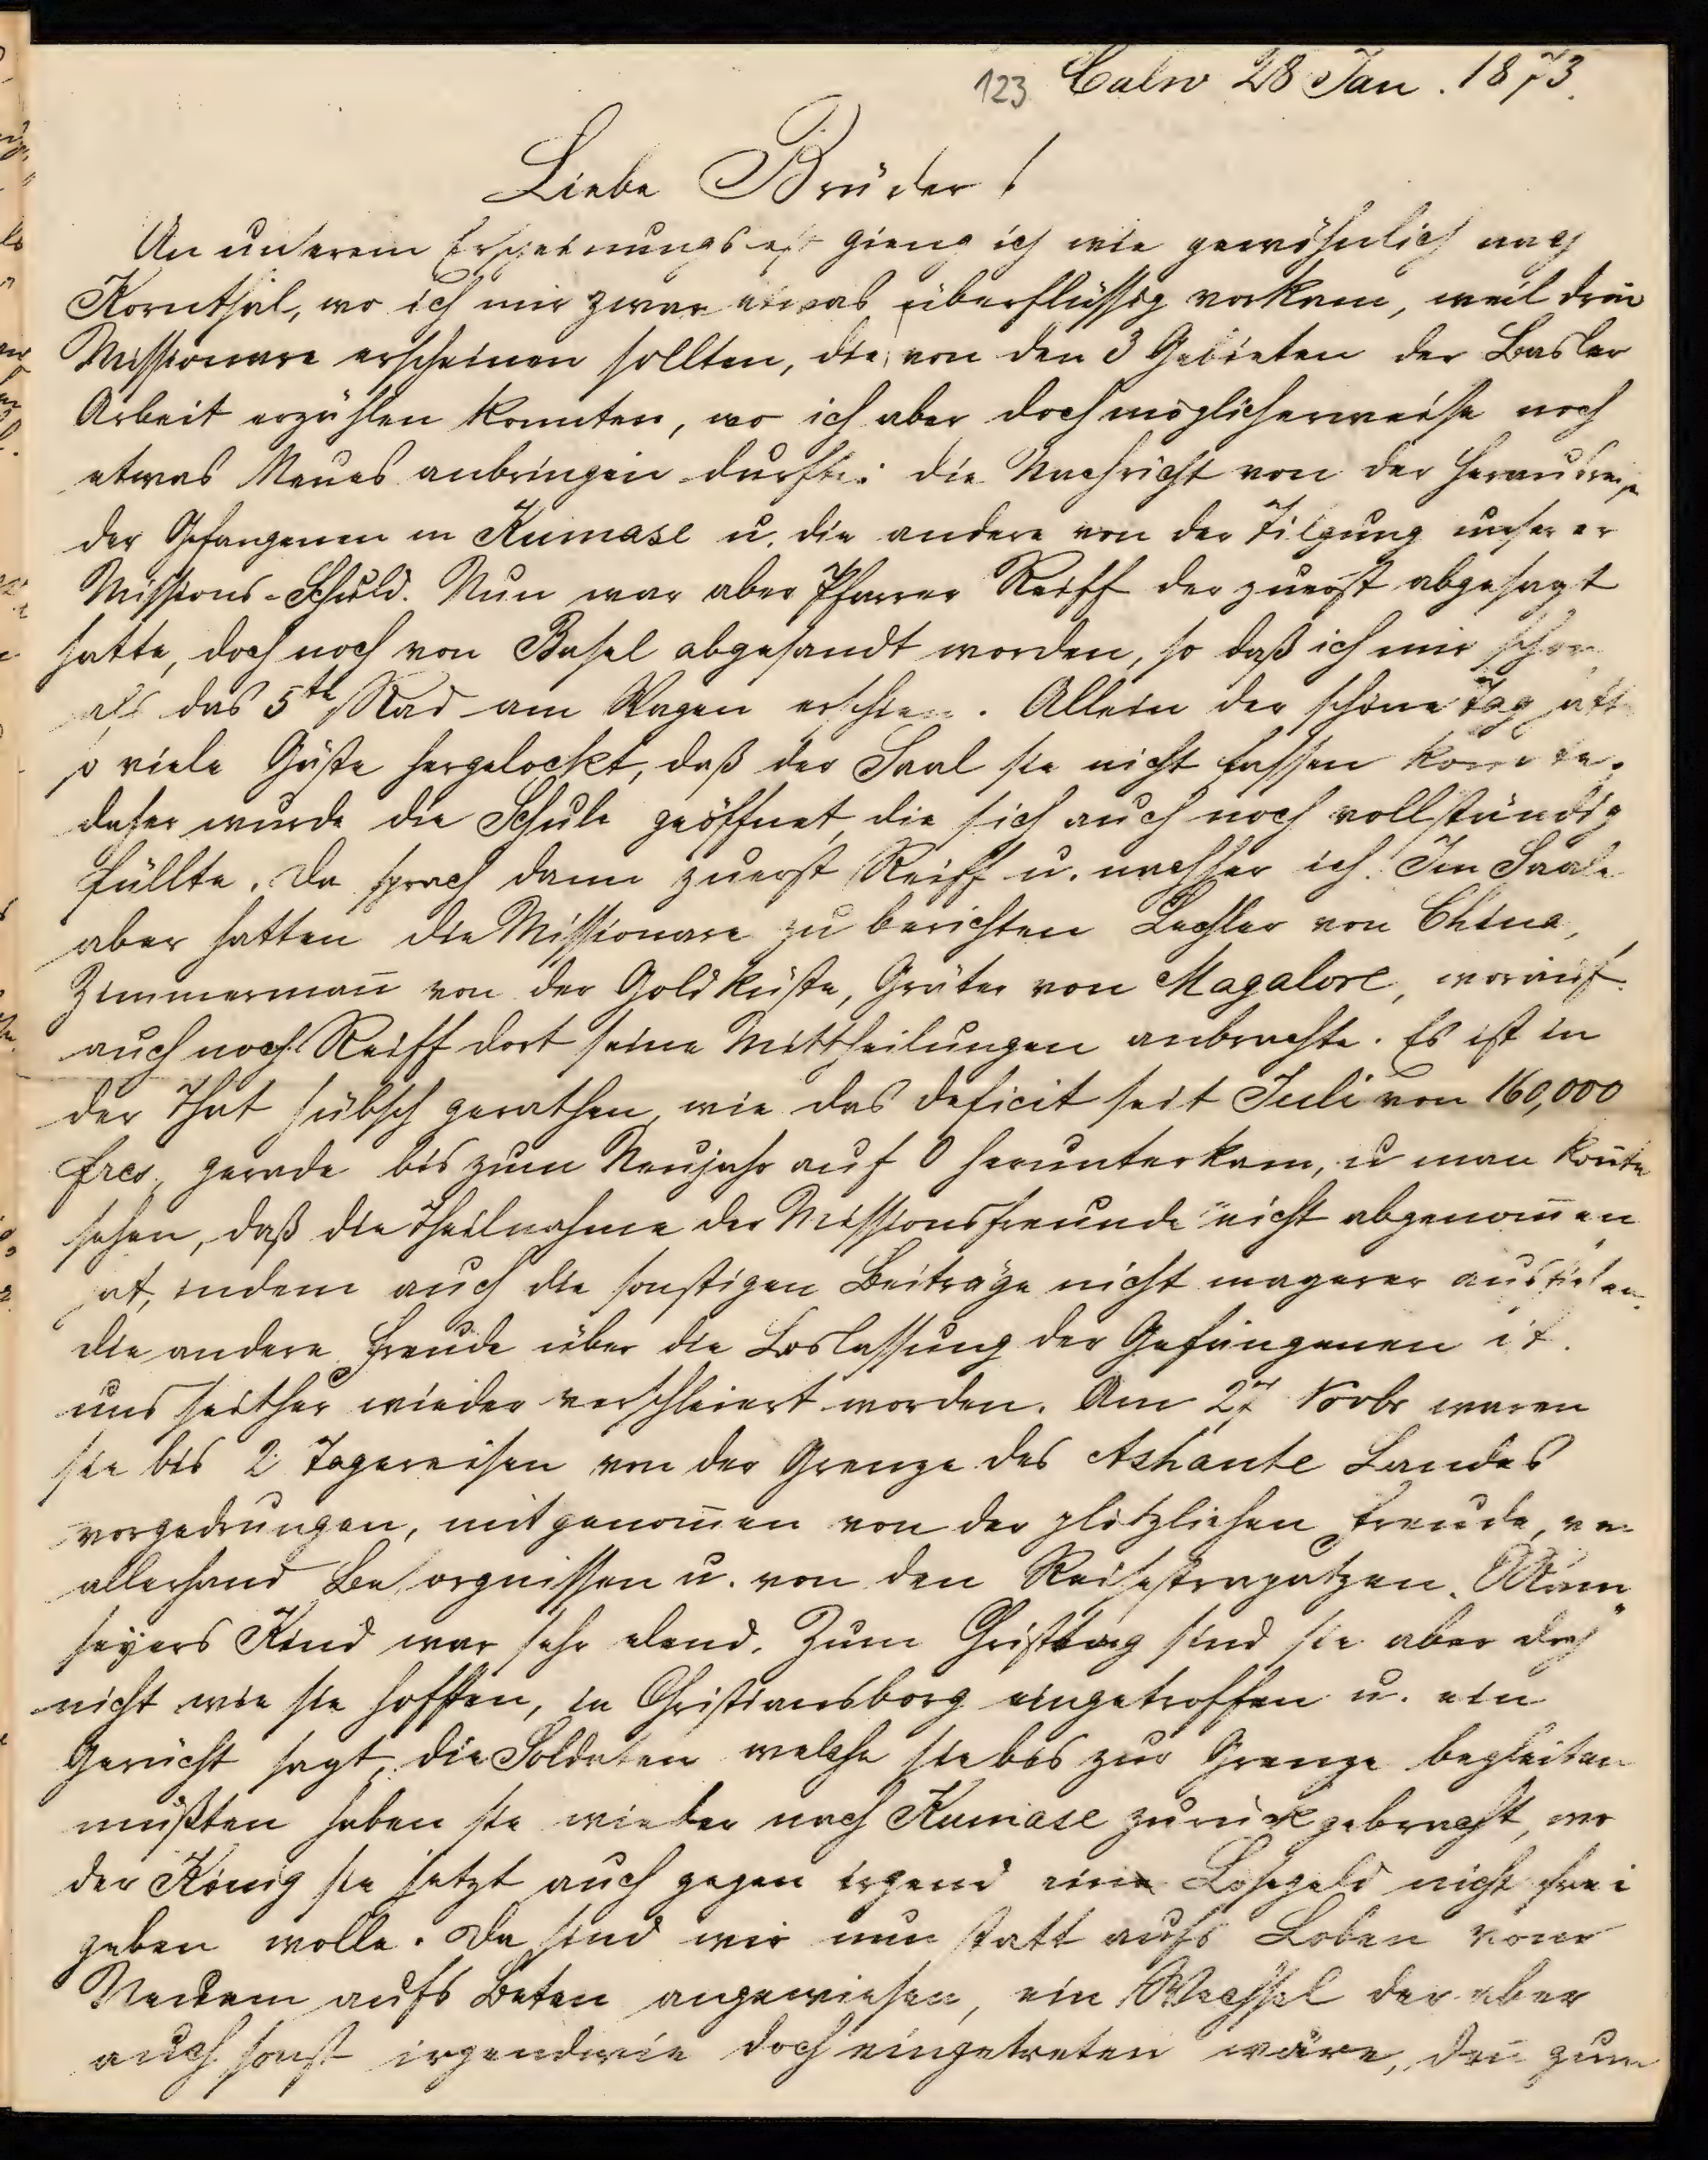 123 Calw 28 Jan. 1873.
Liebe Brüder!
An unserem Erscheinungsfest gieng ich wie gewöhnlich nach
Kornthal, wo ich mir zwar etwas überflüssig vorkam, weil drei
Missionare erscheinen sollten, die von den 3 Gebieten der Basler
Arbeit erzählen konnten, wo ich aber doch möglicherweise noch
etwas Neues anbringen durfte: die Nachricht von der Herausreise
der Gefangenen in Kumase u. die andere von der Tilgung unserer
Missions-Schuld. Nun war aber Pfarrer Reiff der zuerst abgesagt
hatte, doch noch von Basel abgesandt worden, so daß ich mir schon
als das 5te Rad am Wagen erschien. Allein der schöne Tag hatte
so viele Gäste hergelockt, daß der Saal sie nicht fassen konnte.
daher wurde die Schule geöffnet, die sich auch noch vollständig
füllte. Da sprach dann zuerst Reiff u. nachher ich. Im Saale
aber hatten die Missionare zu berichten Lechler von China,
Zimmermann̄ von der Goldküste, Gräter von Magalore, worauf
auch noch Reiff dort seine Mittheilungen anbrachte. Es ist in
der That hübsch gerathen, wie das deficit seit Juli von 160,000
frcs. gerade bis zum Neujahr auf 0 herunterkam, u man kon̄te
sehen, daß die Theilnahme der Missionsfreunde nicht abgenom̄en
hat, indem auch die sonstigen Beiträge nicht magerer ausfielen.
die andere Freude über die Loslassung der Gefangenen ist
uns seither wieder verschleiert worden. Am 27 Novbr waren
sie bis 2 Tagereisen von der Grenze des Ashante Landes
vorgedrungen, mitgenom̄en von der plötzlichen Freude, von
allerhand Besorgnissen u. von den Reisestrapatzen. Ram-
seyers Kind war sehr elend. Zum Christtag sind sie aber doch
nicht wie sie hofften, in Christiansborg eingetroffen u. ein
Gerücht sagt, die Soldaten welche sie bis zur Grenze begleiten
mußten haben sie wieder nach Kumase zurückgebracht, wo
der König sie jetzt auch gegen irgend ein Lösegeld nicht frei
geben wolle. Da sind wir nun statt aufs Loben vom
Neuem aufs Beten angewiesen, ein Wechsel der aber
auch sonst irgendwie doch eingetreten wäre, den̄ zum